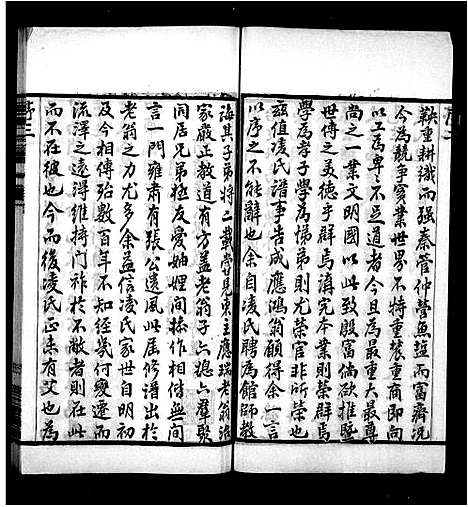 鞅重耕織而强秦管仲營魚鹽而富齊況
今為競爭實業世界不特重農重商即向
以工為卑卑不足道者今且為最重大最尊
尚之一業文明國以此致富倘欲推暨
世傳之美德乎群焉講究本業則榮群焉
學為孝子學為悌弟則尤榮官非所榮也
茲值凌氏譜事告成應鴻翁顧得余一言
以序之不能辭也余自凌氏聘為館師教
誨其子弟將二載常見東主應瑞老翁治
家嚴正教道有方蓋老翁子六孫六羣聚
同居兄弟極友愛妯娌間操作相偕無間
言一門雍肅有張公遺風此居修譜出
老翁之力尤多余益信凌氏家世自明初
及今相傳殆數百年不知經幾何變遷而
流澤之遠得維持門祚於不敝者則在此
而不在彼也今而後凌氏正未有艾也為
序三